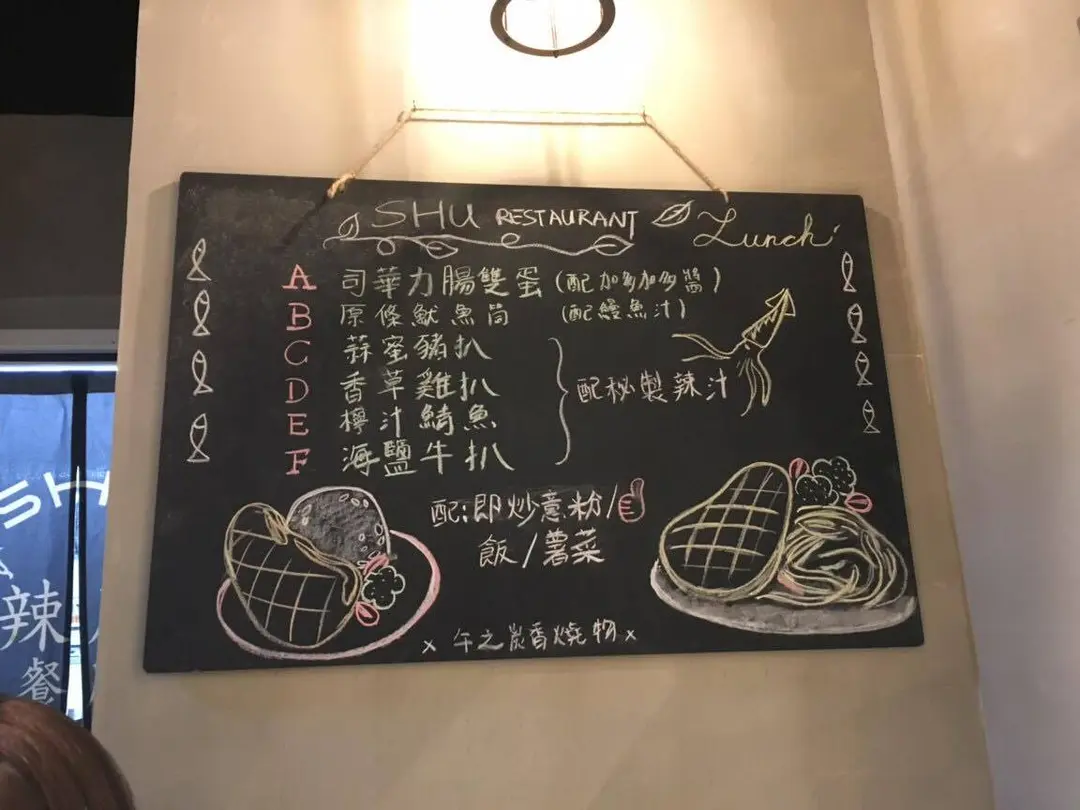 SHU RESTAURANT Lunch
A 司華力腸雙蛋 (配加多加多醬)
B 原條魷魚筒 (配鰻魚汁)
C 蒜蜜豬扒
D 香草雞扒
E 檸汁鯖魚
F 海鹽牛扒
配秘製辣汁
配:即炒薏粉/
飯/薯菜
x 午之炭香燒物 x
SH
辣
餐